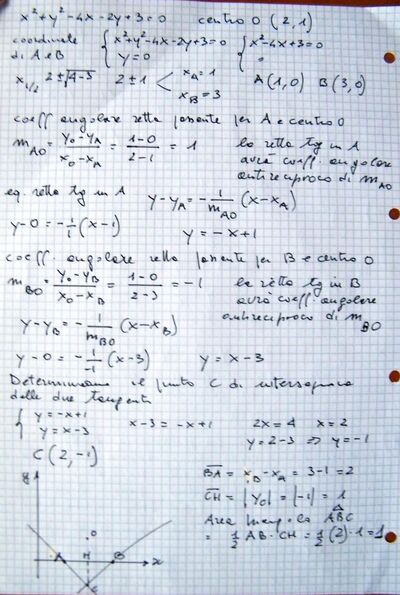 x²+y²-4x-2y+3=0   centro O (2,1)
coordinate di A e B { x²+y²-4x-2y+3=0 { x²-4x+3=0
y=0
x₁/₂ 2±√4-3   2±1 < x_A=1   A(1,0)  B(3,0)
x_B=3
coeff angolare retta passante per A e centro O
m_AO = (y₀-y_A)/(x₀-x_A) = (1-0)/(2-1) = 1   la retta tg in A
avrà coeff. angolare
antireciproco di m_AO
eq. retta tg in A   y-y_A = -1/m_AO (x-x_A)
y-0 = -1/1 (x-1)   y=-x+1
coeff. angolare retta passante per B e centro O
m_BO = (y₀-y_B)/(x₀-x_B) = (1-0)/(2-3) = -1   la retta tg in B
avrà coeff angolare
antireciproco di m_BO
y-y_B = -1/m_BO (x-x_B)
y-0 = -1/-1 (x-3)   y=x-3
Determiniamo il punto C di intersezione
delle due tangenti
{ y=-x+1   x-3=-x+1   2x=4   x=2
y=x-3   y=2-3 ⇒ y=-1
C(2,-1)
BA = x_B-x_A = 3-1=2
CH = |y_C| = |-1| = 1
Area triangolo ABC
= 1/2 AB·CH = 1/2 (2)·1=1
y
O
A H B x
C